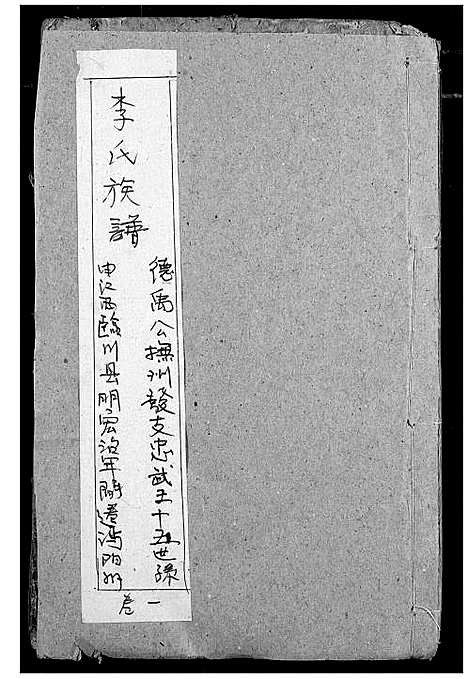 李氏族譜
德禹公撫州發支忠武王十五世孫
由江西臨川县明宏治年間迁沔阳州
卷一